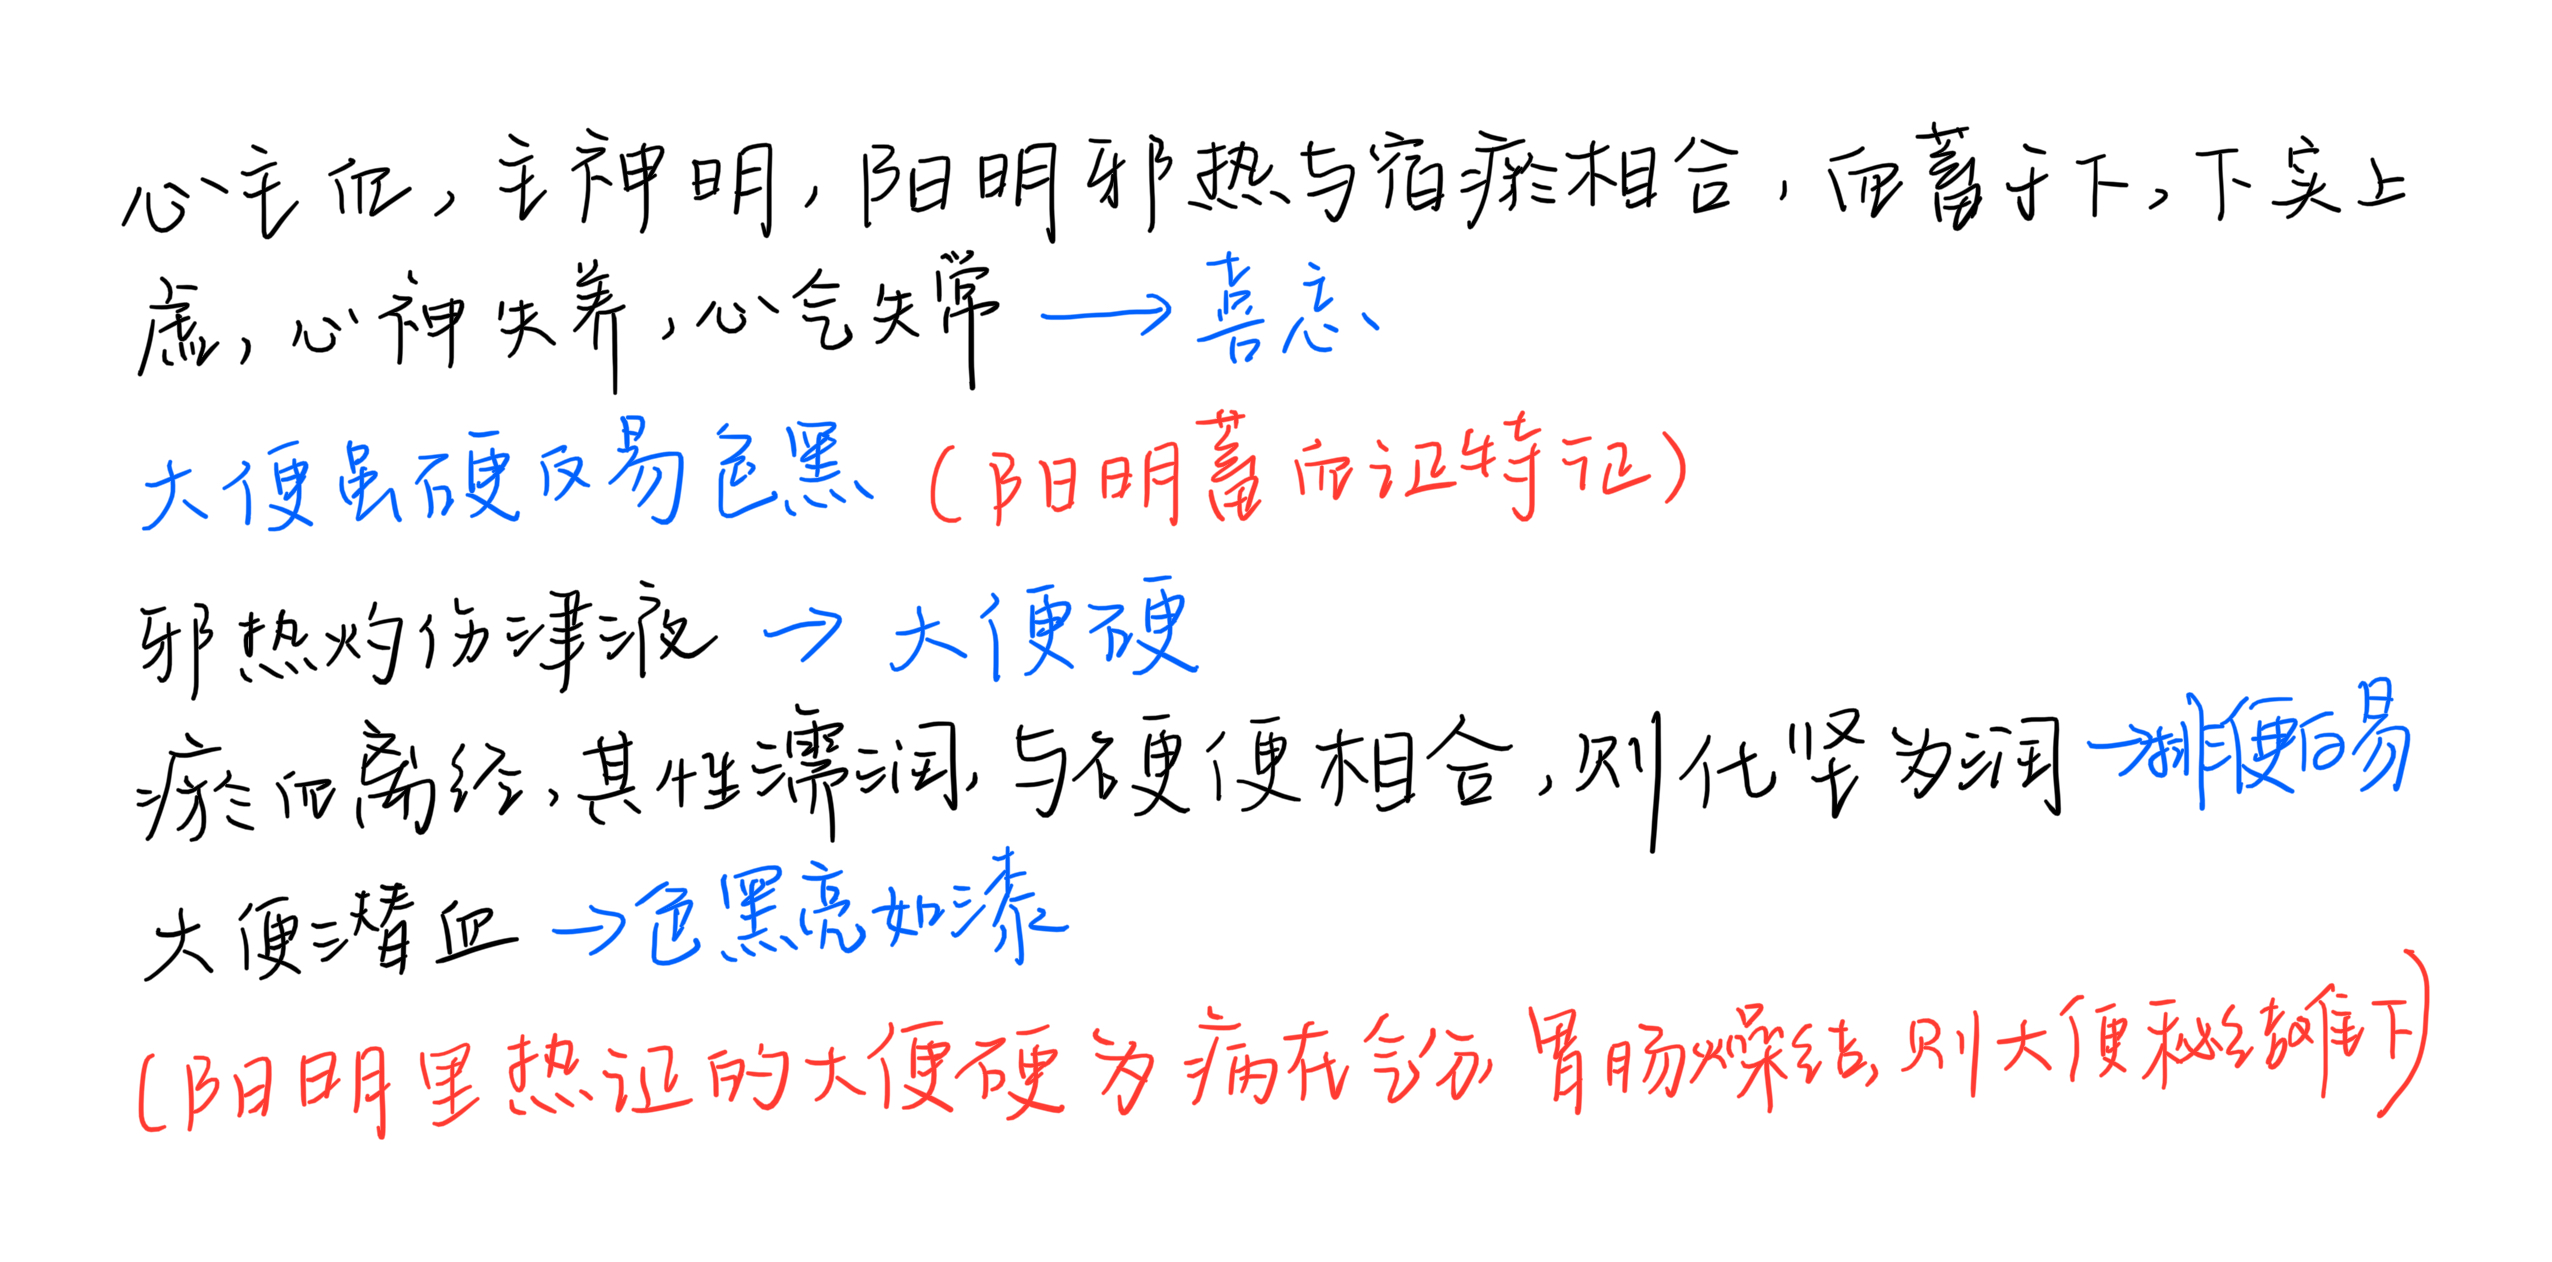 心主血,主神明,阳明邪热与宿瘀相合,而蓄于下,下实上
虚,心神失养,心气失常→喜忘
大便虽硬反易色黑(阳明蓄血证特征)
邪热灼伤津液→大便硬
瘀血离经,其性濡润,与硬便相合,则化坚为润→排便反易
大便潜血→色黑亮如漆
(阳明里热证的大便硬为病在气分,胃肠燥结,则大便秘结难下)